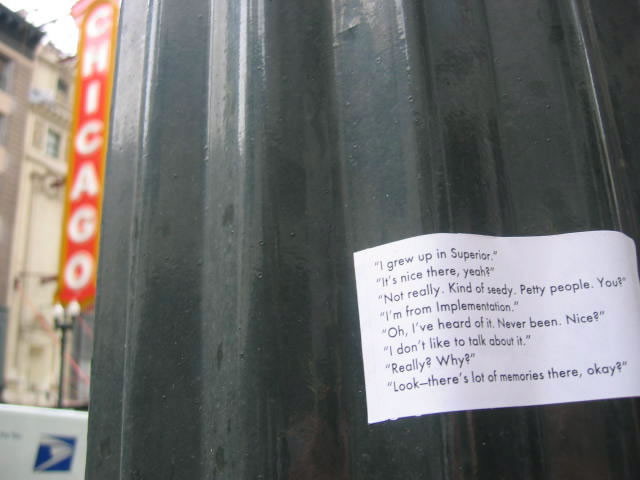 CHICAGO
"I grew up in Superior."
"It's nice there, yeah?"
"Not really. Kind of seedy. Petty people. You?"
"I'm from Implementation."
"Oh, I've heard of it. Never been. Nice?"
"I don't like to talk about it."
"Really? Why?"
"Look—there's lot of memories there, okay?"